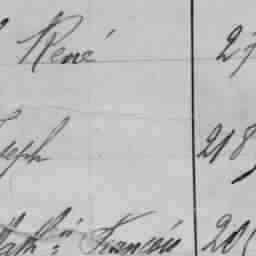 René 27
seph 218
Math.in François 20